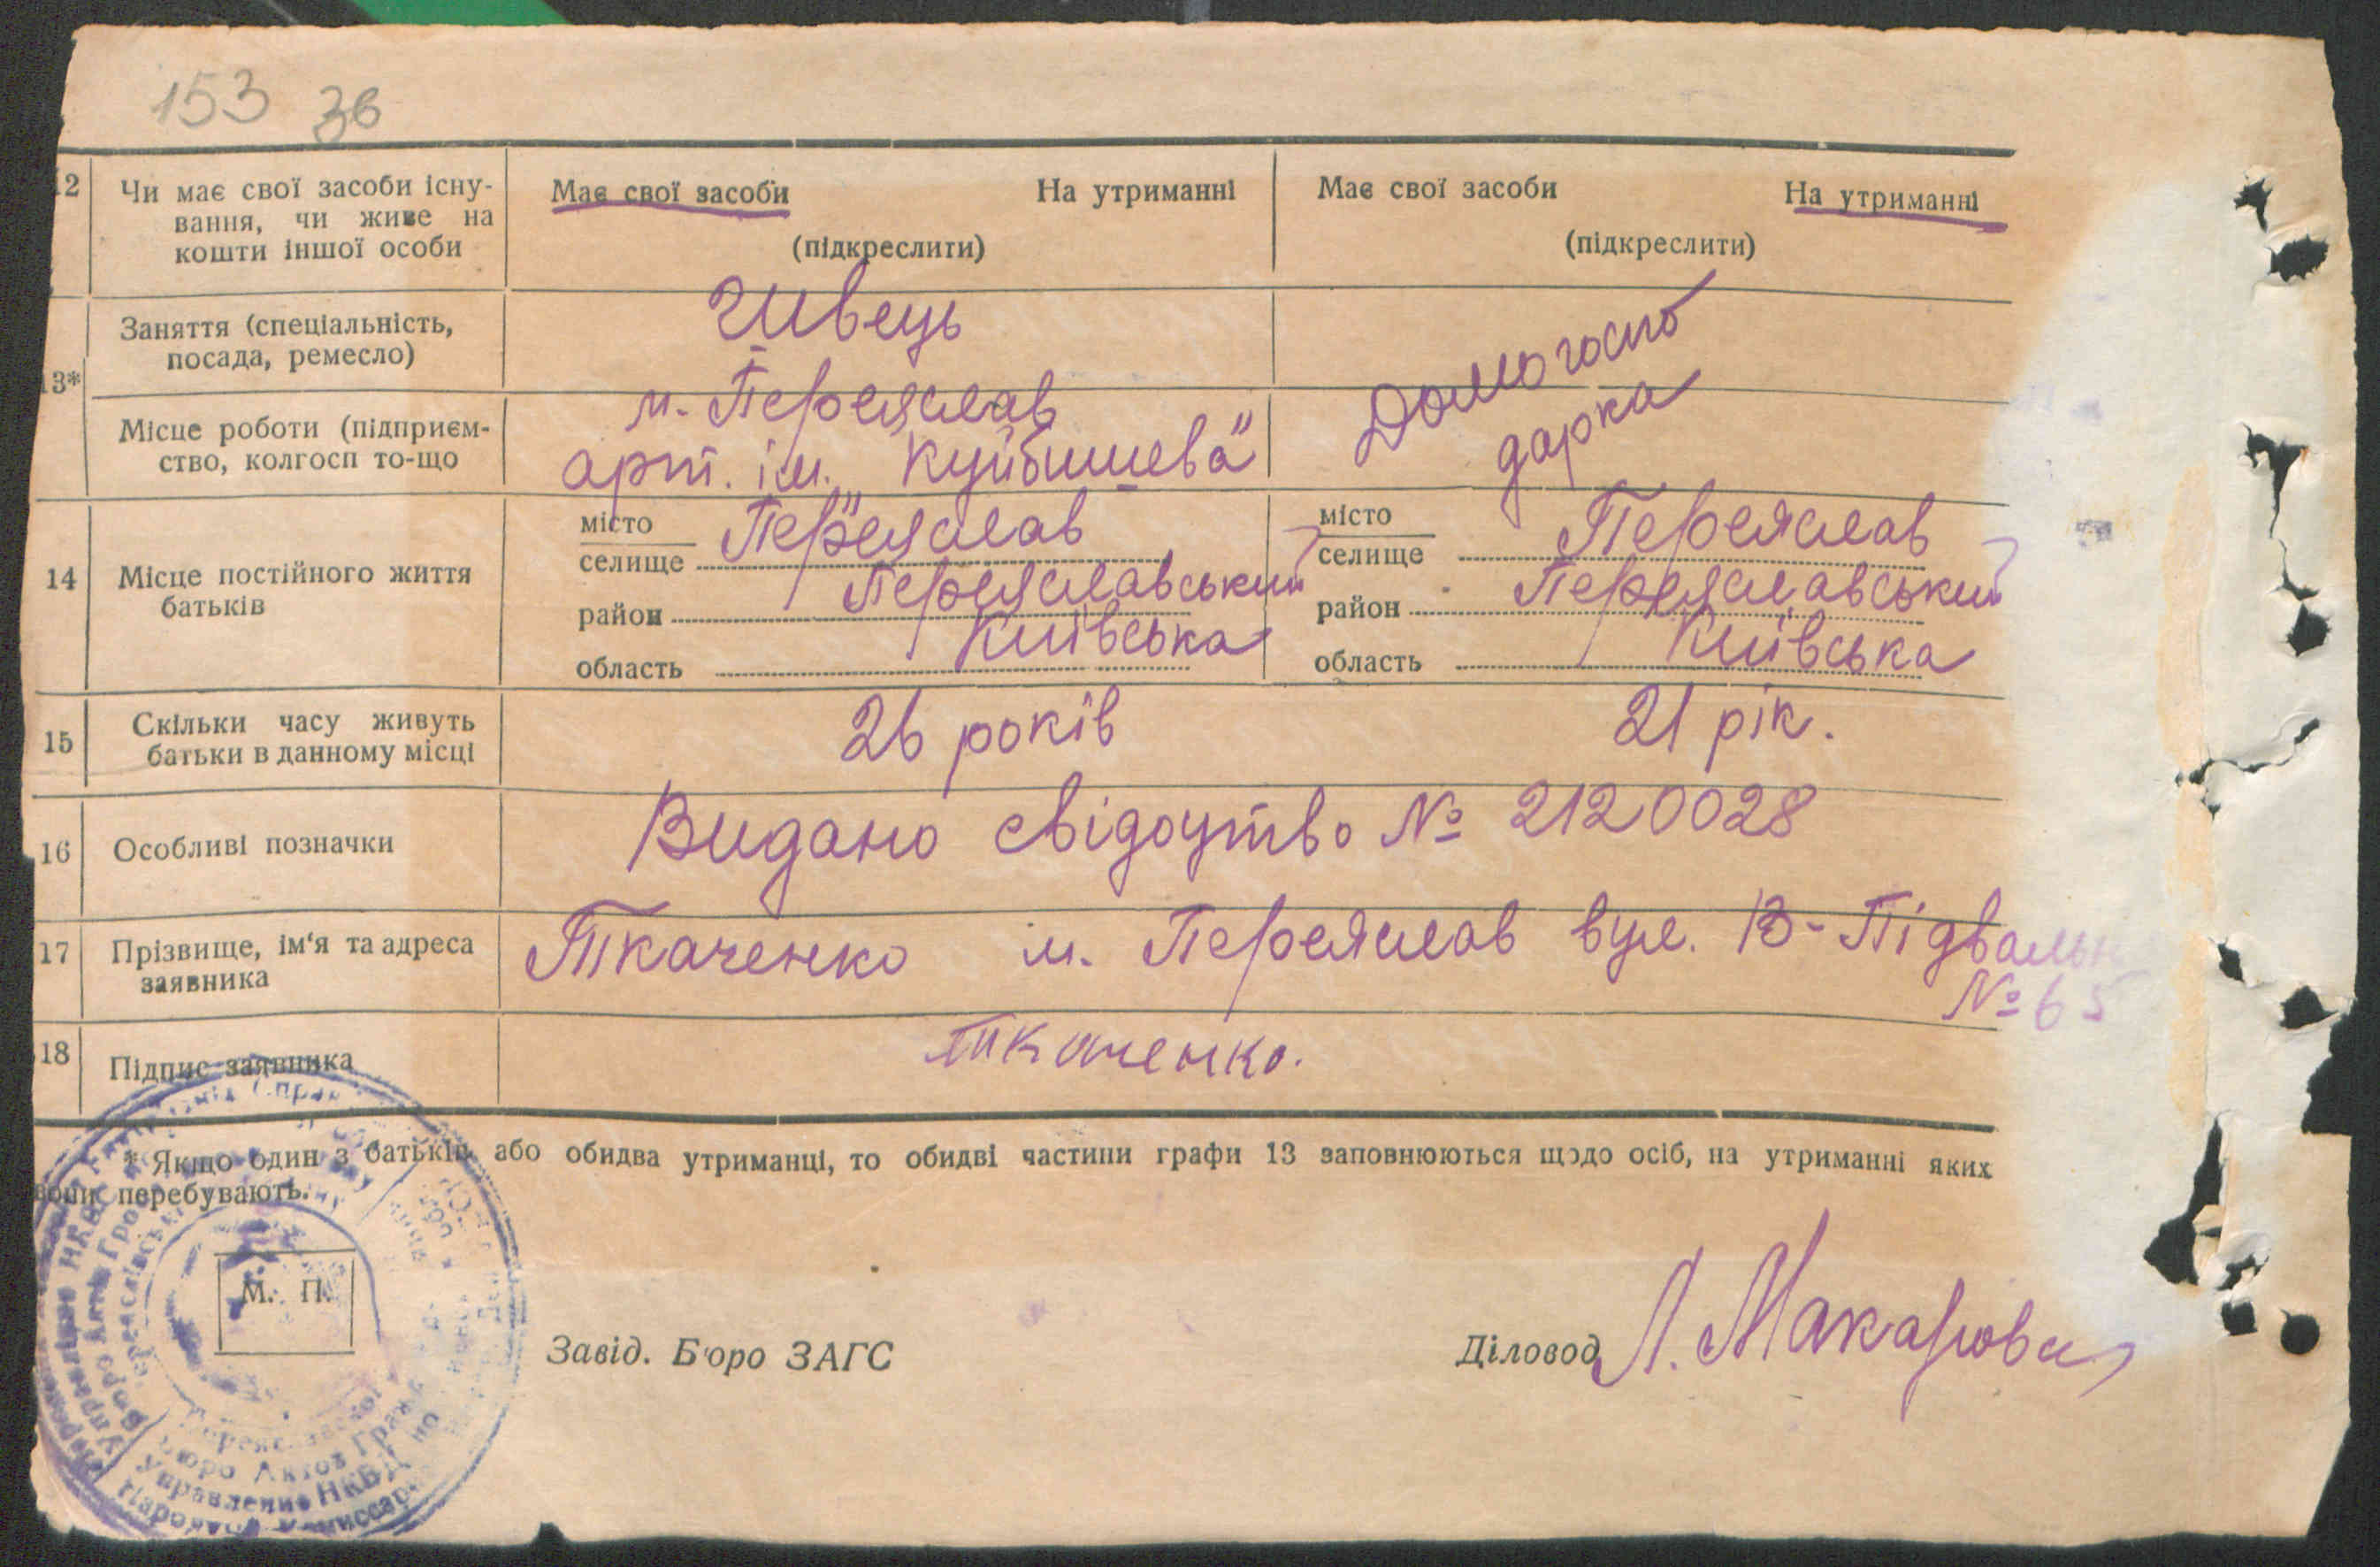 153 36
12 Чи має свої засоби існу-
вання, чи живе на
кошти іншої особи
Має свої засоби На утриманні
(підкреслити)
Має свої засоби На утриманні
(підкреслити)
13*
Заняття (спеціальність,
посада, ремесло)
Швець
Домогоспо
дарка
Місце роботи (підприєм-
ство, колгосп то-що
м. Переяслав
арт. ім. „Куйбишева"
14 Місце постійного життя
батьків
місто
селище Переяслав
район Переяславський
область Київська
місто
селище Переяслав
район Переяславський
область Київська
15 Скільки часу живуть
батьки в данному місці
26 років
21 рік.
16 Особливі позначки
Видано свідоцтво № 2120028
17 Прізвище, ім'я та адреса
заявника
Ткаченко м. Переяслав вул. В-Підвальн
№ 65
18 Підпис заявника
Ткаченко.
* Якщо один з батьків або обидва утриманці, то обидві частини графи 13 заповнюються щодо осіб, на утриманні яких
вони перебувають.
М. П.
Завід. Бюро ЗАГС
Діловод Л. Макарова
Бюро Актов Граж
Управление НКВД